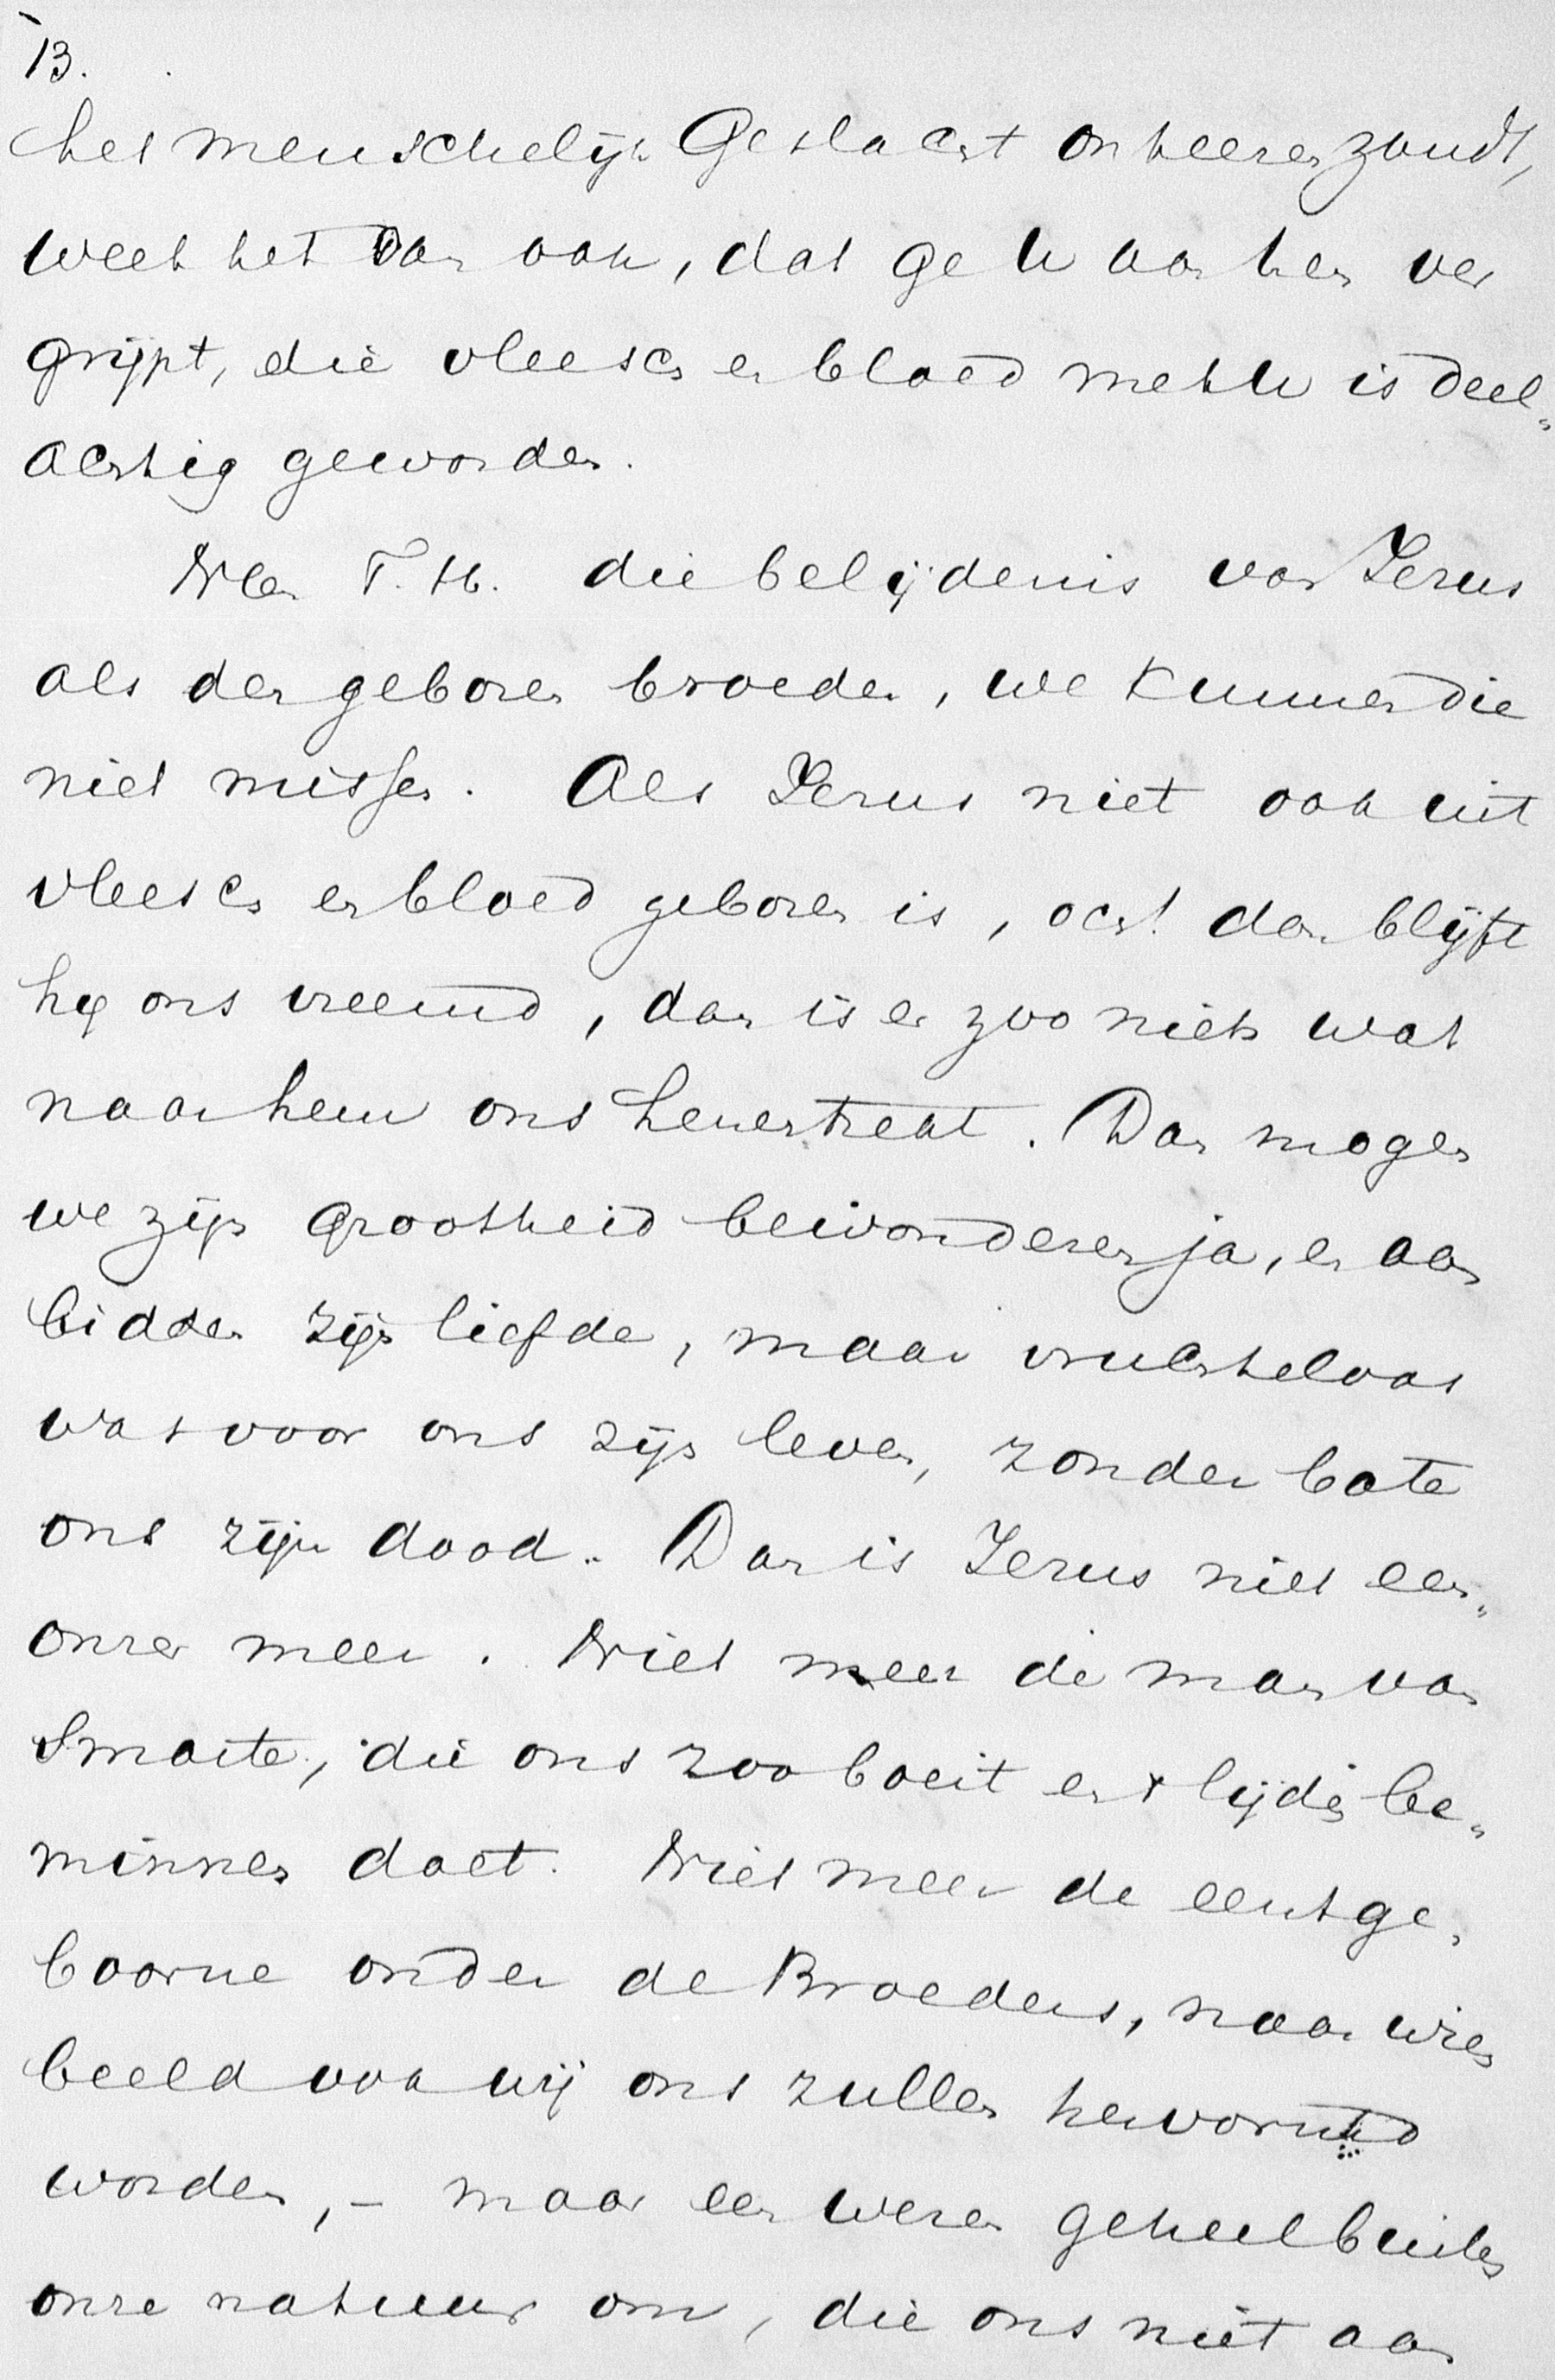 13.
het menschelijk Geslacht onteeren zoudt,
weet het dan ook, dat ge U aan hem ver
grijpt, die vleesch en bloed met U is deel„
achtig geworden.
Neen T. H. die belijdenis van Jezus
als den geboren broeder, we kunnen die
niet missen. Als Jezus niet ook uit
vleesch en bloed geboren is, och! dan blijft
hij ons vreemd, dan is er zoo niets wat
naar hem ons henentrekt. Dan mogen
we zijn grootheid bewonderen ja, en aan
bidden zijn liefde, maar vruchteloos
was voor ons zijn leven, zonder bate
ons zijn dood. Dan is Jezus niet een„
onzer meer. Niet meer de man van
Smarte, die ons zoo boeit en x lijden be„
minnen doet. Niet meer de eerstge„
boorne onder de Broeders, naar wiens
beeld ook wij ons zullen hervormd
worden, – maar een wezen geheel buiten
onze natuur om, die ons niet aan